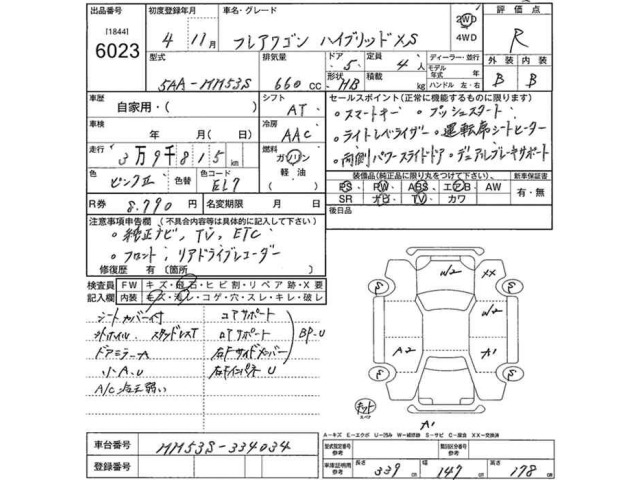 出品番号 初度登録年月 車名・グレード 2WD 4WD 評価点
[1844]
6023
4年 11月 フレアワゴン ハイブリッドXS R
型式 排気量 ドア 定員 ディーラー・並行 外装 内装
5AA-MM53S 660cc 5 4人 モデル年式 年
形状 HB 積載 kg ハンドル 左・右 B B
車歴 自家用・( ) シフト AT
セールスポイント(正常に機能するものに限ります)
・スマートキー ・プッシュスタート
・ライトレベライザー ・運転席シートヒーター
・両側パワースライドドア ・デュアルブレーキサポート
車検 年 月( 日) 冷房 AAC
走行 3万9千815km 燃料 ガソリン 軽油 ( )
色 ピンクⅡ 色替 色コード EL7
装備品(純正品に限り丸をつけて下さい。) 新車保証書
PS PW ABS エアB AW 有・無
SR ナビ TV カワ
R券 8,790 名変期限 月 日 後日品
注意事項申告欄(不具合内容等は具体的に記入して下さい)
・純正ナビ,TV,ETC
・フロント,リアドライブレコーダー
修復歴 有(箇所 )
検査員記入欄 FW キズ・飛石・ヒビ割・リペア跡・X要
内装 キズ・汚レ・コゲ・穴・スレ・キレ・破レ
シートカバー付 コアサポート
スタッドレスT コアサポート BP-U
ドアミラーA 右Fサイドメンバー
小A.U 右Fインパネ U
A/C 点圧弱い
W2 XX W2 A2 A1 A1
S S S S
キット スペア
A-キズ E-エクボ U-凹み W-補修跡 S-サビ C-腐食 XX-交換済
車台番号 MM53S-334034
登録番号
型式指定番号 参考 類別区分番号 参考
車庫証明用 参考 長さ 339cm 幅 147cm 高さ 178cm